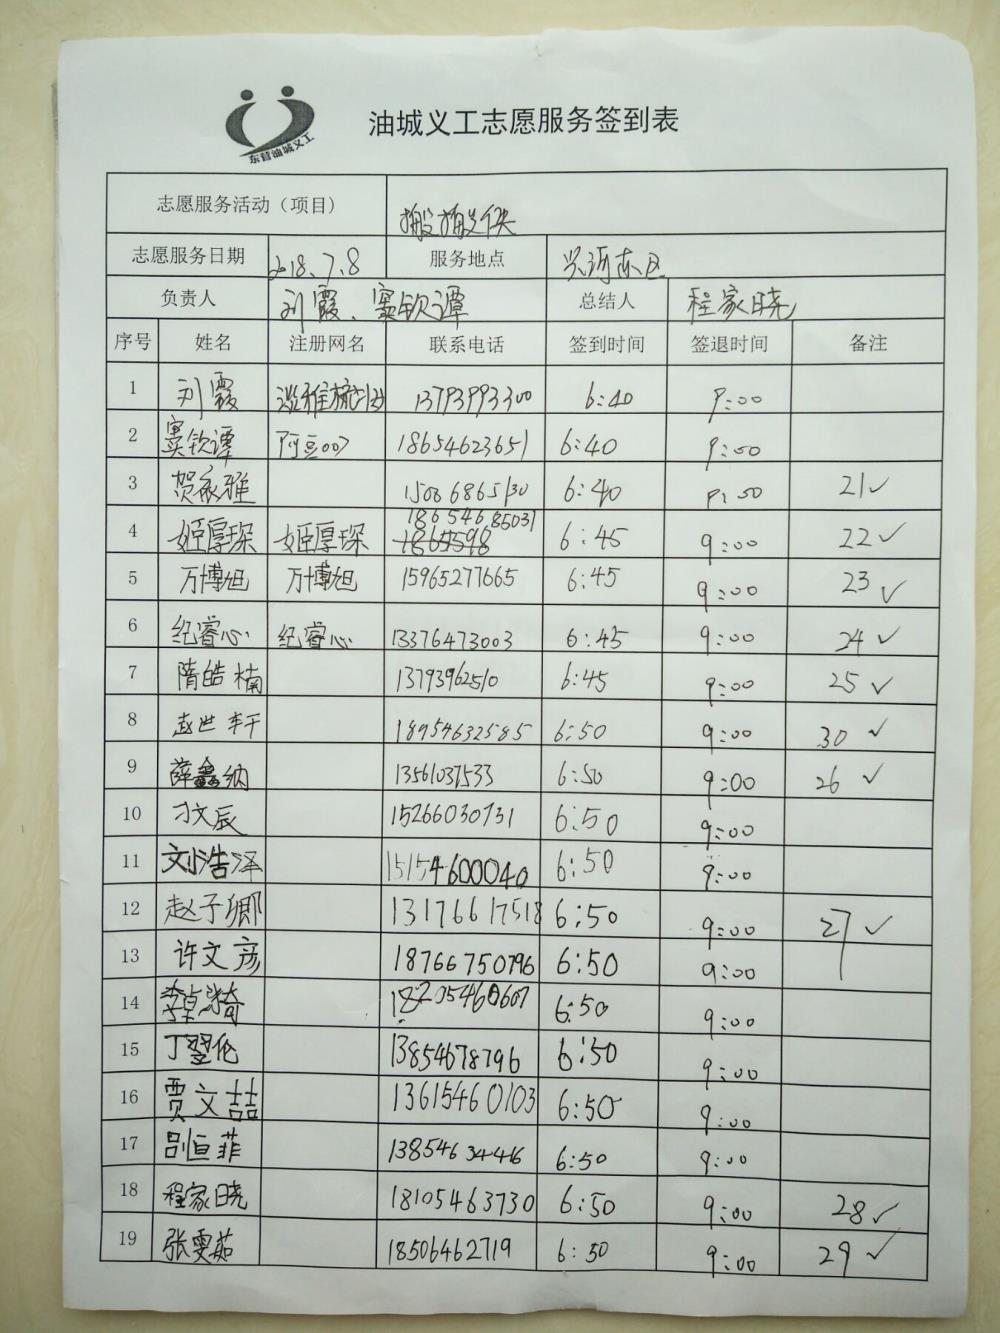 油城义工志愿服务签到表
东营油城义工
志愿服务活动（项目） 搬搬侠
志愿服务日期 2018.7.8 服务地点 兴河东区
负责人 刘霞、窦钦谭 总结人 程家晓
序号 姓名 注册网名 联系电话 签到时间 签退时间 备注
1 刘霞 13793993300 6:40 9:00
2 窦钦谭 阿豆007 18654623651 6:40 9:00
3 贺依雅 15006865130 6:40 9:00 21✓
4 姬厚琛 姬厚琛 18654685031 6:45 9:00 22✓
5 万博旭 万博旭 15965277665 6:45 9:00 23✓
6 纪睿心 纪睿心 13376473003 6:45 9:00 24✓
7 隋皓楠 13793962510 6:45 9:00 25✓
8 赵世轩 18954632585 6:50 9:00 30✓
9 薛鑫纳 13561037533 6:50 9:00 26✓
10 刁文辰 15266030731 6:50 9:00
11 刘浩泽 15154600040 6:50 9:00
12 赵子卿 13176617518 6:50 9:00 27✓
13 许文彦 18766750796 6:50 9:00
14 李卓 18205460607 6:50 9:00
15 丁翌伦 13854678796 6:50 9:00
16 贾文喆 13615460103 6:50 9:00
17 吕恒菲 6:50 9:00
18 程家晓 18105463730 6:50 9:00 28✓
19 张雯茹 18506462719 6:50 9:00 29✓